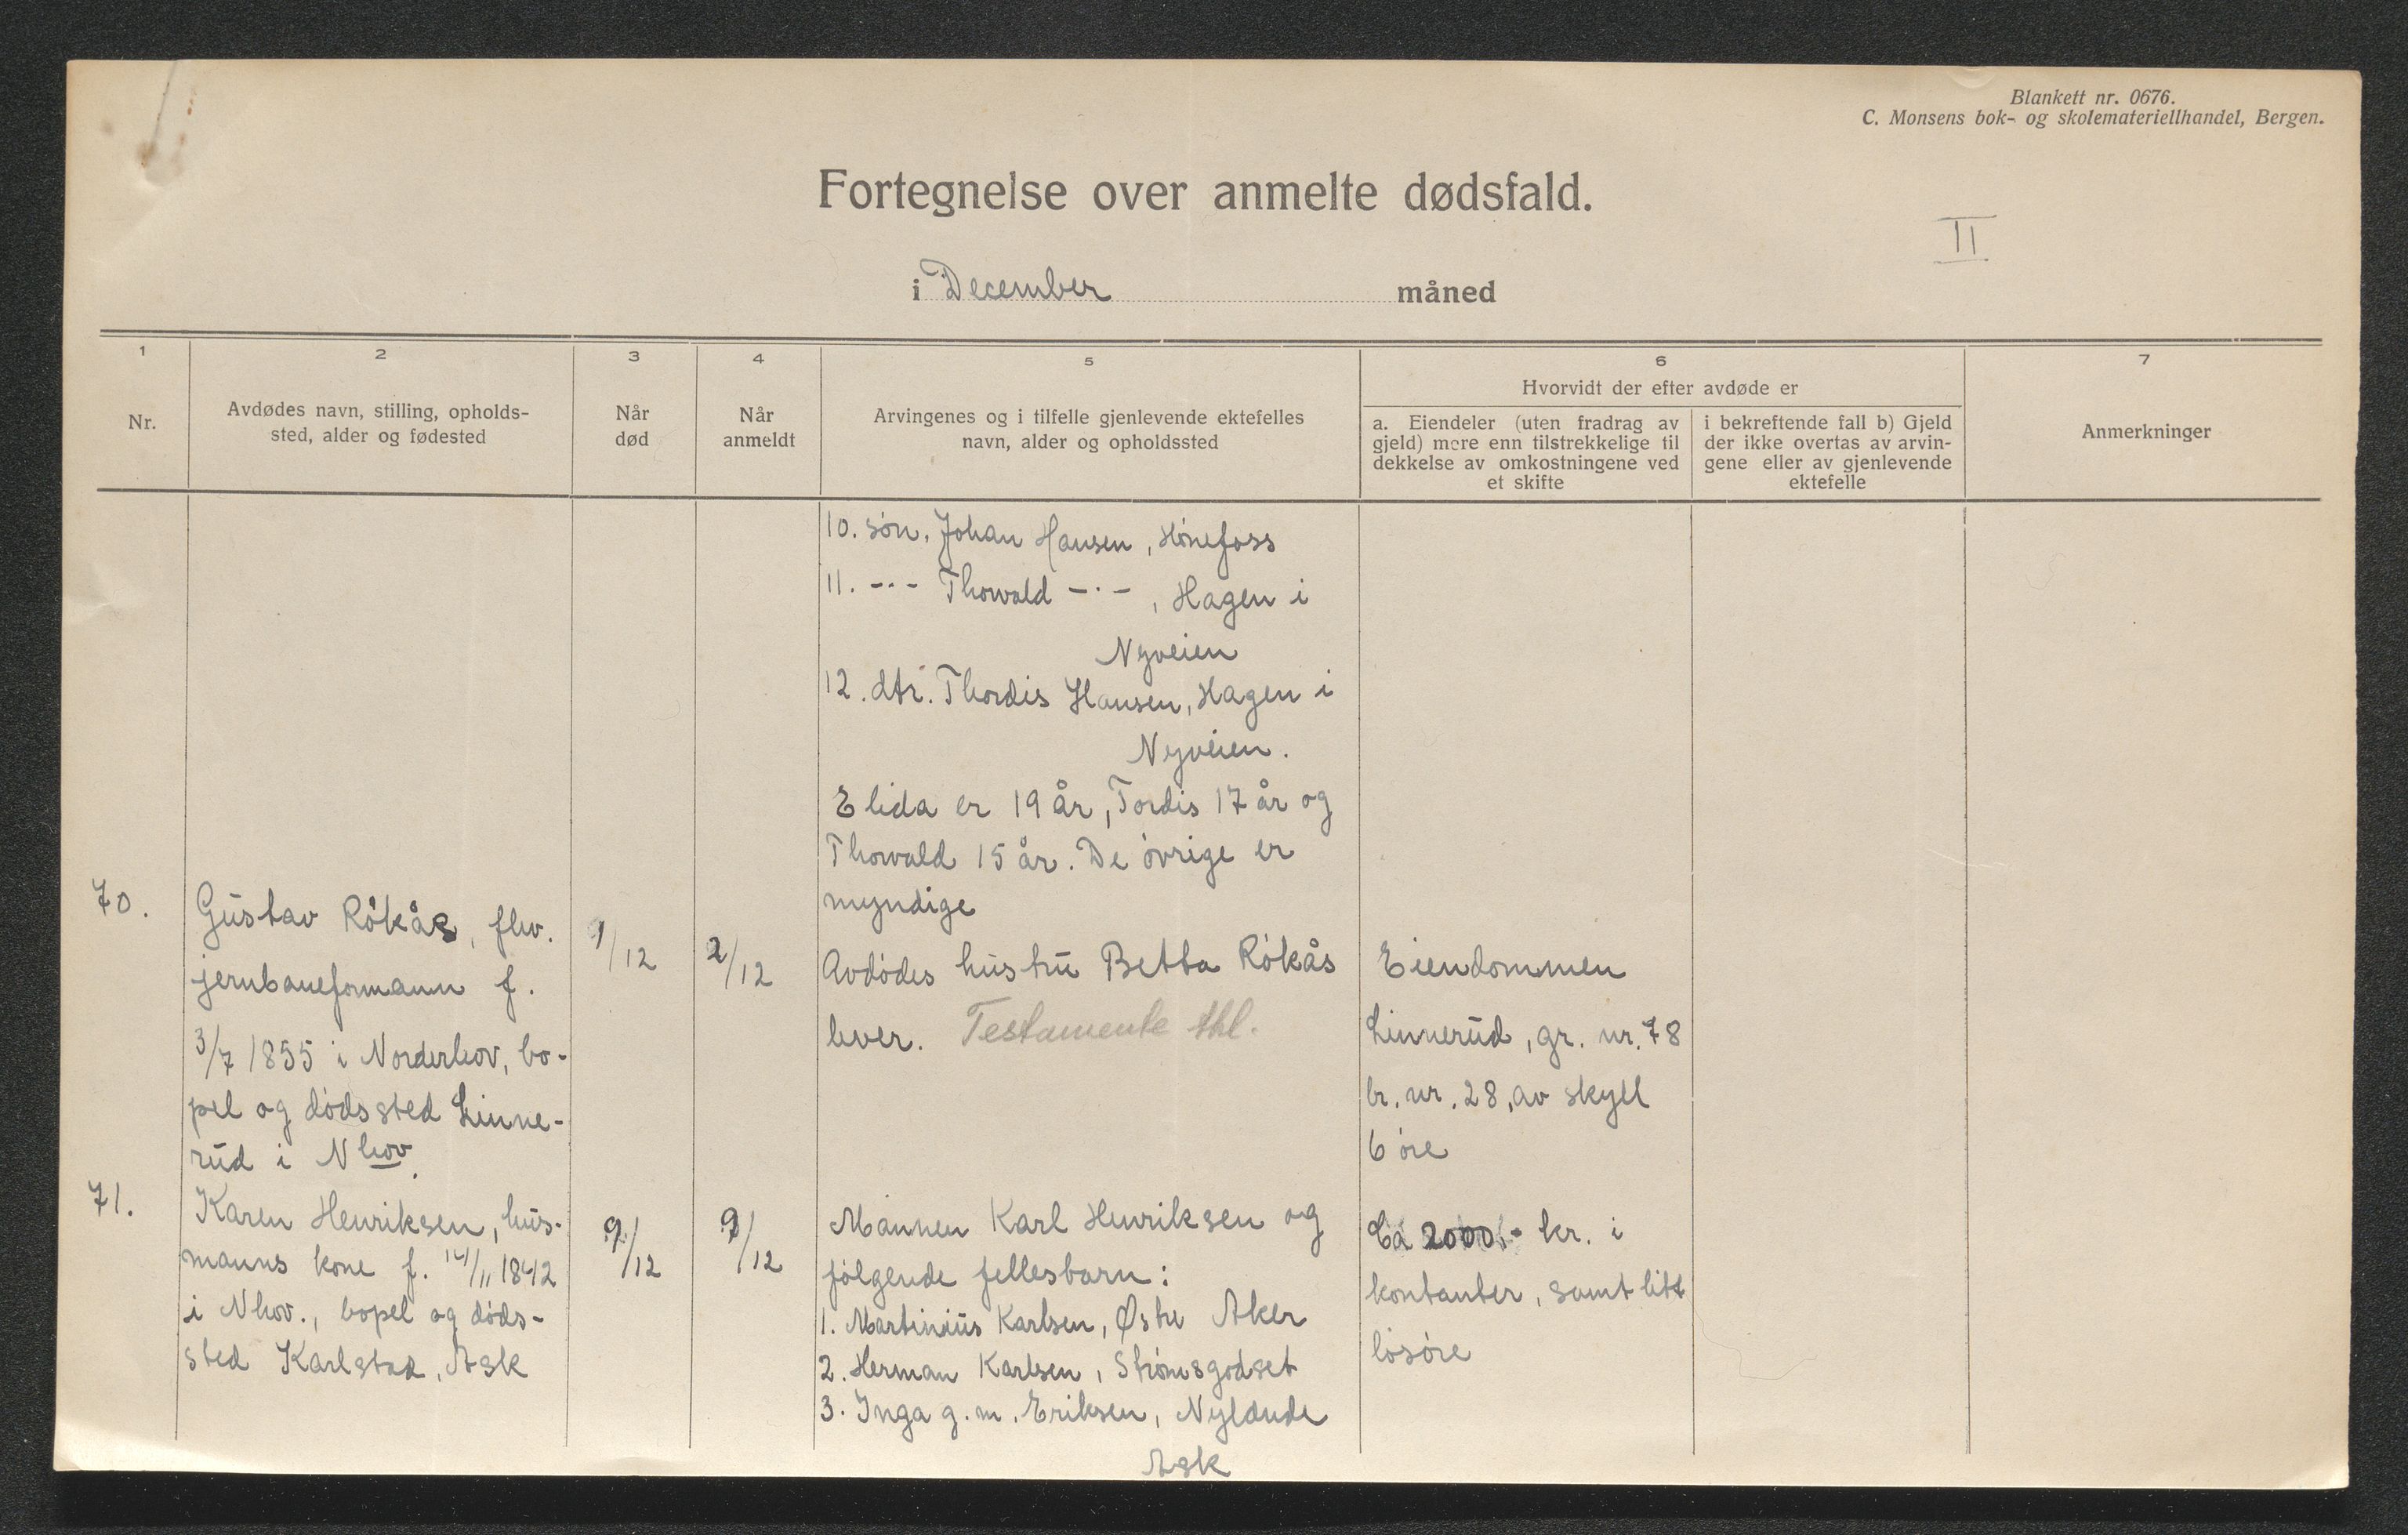 Blankett nr. 0676.
C. Monsens bok- og skolemateriellhandel, Bergen.
Fortegnelse over anmelte dødsfald.
II
i December måned
1
2
3
4
5
6
7
Nr.
Avdødes navn, stilling, opholds-
sted, alder og fødested
Når
død
Når
anmeldt
Arvingenes og i tilfelle gjenlevende ektefelles
navn, alder og opholdssted
Hvorvidt der efter avdøde er
a. Eiendeler (uten fradrag av
gjeld) mere enn tilstrekkelige til
dekkelse av omkostningene ved
et skifte
i bekreftende fall b) Gjeld
der ikke overtas av arvin-
gene eller av gjenlevende
ektefelle
Anmerkninger
10. søn. Johan Hansen, Hønefoss
11. -·- Thorvald -·-, Hagen i
Nyveien
12. dtr. Thordis Hansen, Hagen i
Nyveien.
Elida er 19 år, Tordis 17 år og
Thorvald 15 år. De øvrige er
myndige
70.
Gustav Rökås, fhv.
jernbaneformann f.
3/7 1855 i Norderhov, bo-
pel og dødssted Linne-
rud i Nhov.
1/12
2/12
Avdødes hustru Betta Rökås
lever. Testamente thl.
Eiendommen
Linnerud, gr. nr. 78
br. nr. 28, av skyll
6 øre
71.
Karen Henriksen, hus-
manns kone f. 14/11 1842
i Nhov., bopel og døds-
sted Karlstad, Ask
9/12
9/12
Mannen Karl Henriksen og
følgende fellesbarn:
1. Martinius Karlsen, Østre Aker
2. Herman Karlsen, Strømsgodset
3. Inga g. m. Eriksen, Nylænde
Ask
Ca 2000,- kr. i
kontanter, samt litt
løsøre